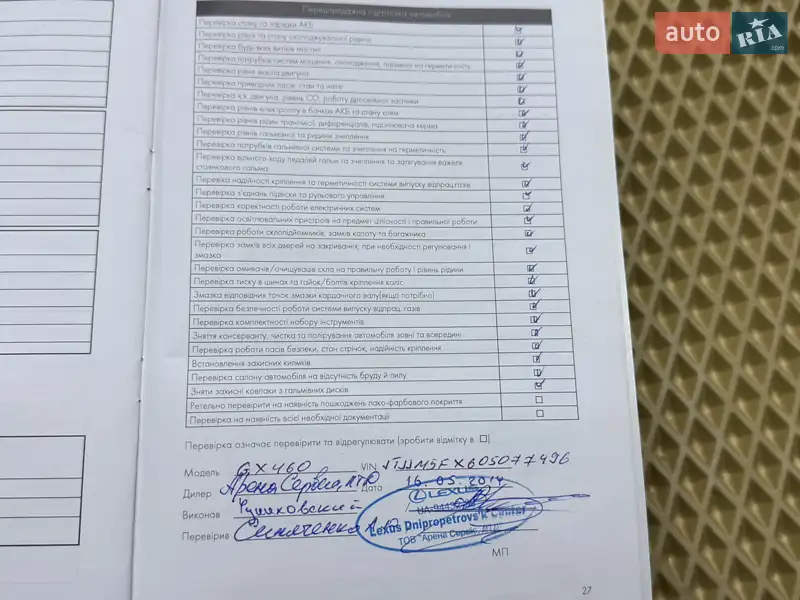 Передпродажна підготовка автомобіля
Перевірка стану та зарядки АКБ
Перевірка рівня та стану охолоджувальної рідини
Перевірка будь яких витоків мастил
Перевірка патрубків систем мощення, охолодження, паливної на герметичність
Перевірка рівня масла двигуна
Перевірка приводних пасів: стан та натяг
Перевірка х.х. двигуна, рівень СО, роботу дросельної заслінки
Перевірка рівнів електроліту в банках АКБ та стану клем
Перевірка рівнів рідин трансмісії, диференціалів, підсилювача керма
Перевірка рівнів гальмівної та рідини зчеплення
Перевірка патрубків гальмівної системи та зчеплення на герметичність
Перевірка вольного ходу педалей гальм та зчеплення та затягування важеля
стоянкового гальма
Перевірка надійності кріплення та герметичності системи випуску відпрац.газів
Перевірка з'єднань підвіски та рульового управління
Перевірка коректності роботи електричних систем
Перевірка освітлювальних пристроїв на предмет цілісності і правильної роботи
Перевірка роботи склопідйомників, замків капоту та багажника
Перевірка замків всіх дверей на закривання, при необхідності регулювання і
змазка
Перевірка омивачів/очищувачів скла на правильну роботу і рівень рідини
Перевірка тиску в шинах та гайок/болтів кріплення коліс
Змазка відповідних точок змазки карданного валу(якщо потрібно)
Перевірка безпечності роботи системи випуску відпрац. газів
Перевірка комплектності набору інструментів
Зняття консерванту, чистка та полірування автомобіля зовні та всередині
Перевірка роботи пасів безпеки, стан стрічок, надійність кріплення
Встановлення захисних килимків
Перевірка салону автомобіля на відсутність бруду й пилу
Зняти захисні ковпаки з гальмівних дисків
Ретельно перевірити на наявність пошкоджень лако-фарбового покриття
Перевірка на наявність всієї необхідної документації
Перевірка означає перевірити та відрегулювати (зробити відмітку в ☐)
Модель GX460 VIN JTJJM5FX605077496
Дилер Арена Сервіс ЛТД Дата 16.05.2014
LEXUS
Виконав
Lexus Dnipropetrovs'k Center
Перевірив
ТОВ "Арена Сервіс ЛТД"
МП
27
auto RIA
.com